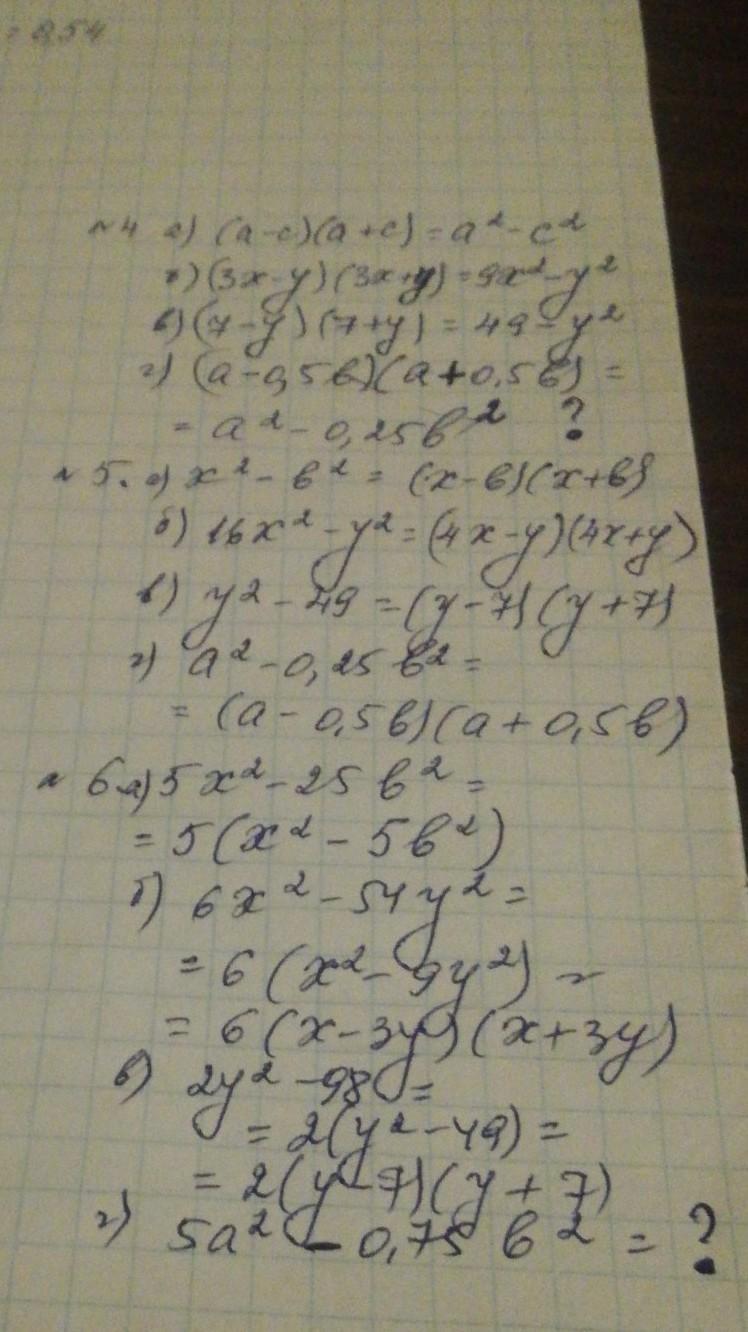 = 0,54
№4 а) (a-c)(a+c) = a² - c²
б) (3x-y)(3x+y) = 9x² - y²
в) (7-y)(7+y) = 49 - y²
г) (a-0,5b)(a+0,5b) =
= a² - 0,25b² ?
№5. а) x² - b² = (x-b)(x+b)
б) 16x² - y² = (4x-y)(4x+y)
в) y² - 49 = (y-7)(y+7)
г) a² - 0,25b² =
= (a - 0,5b)(a + 0,5b)
№6 а) 5x² - 25b² =
= 5(x² - 5b²)
б) 6x² - 54y² =
= 6(x² - 9y²) =
= 6(x-3y)(x+3y)
в) 2y² - 98 =
= 2(y² - 49) =
= 2(y-7)(y+7)
г) 5a² - 0,75b² = ?